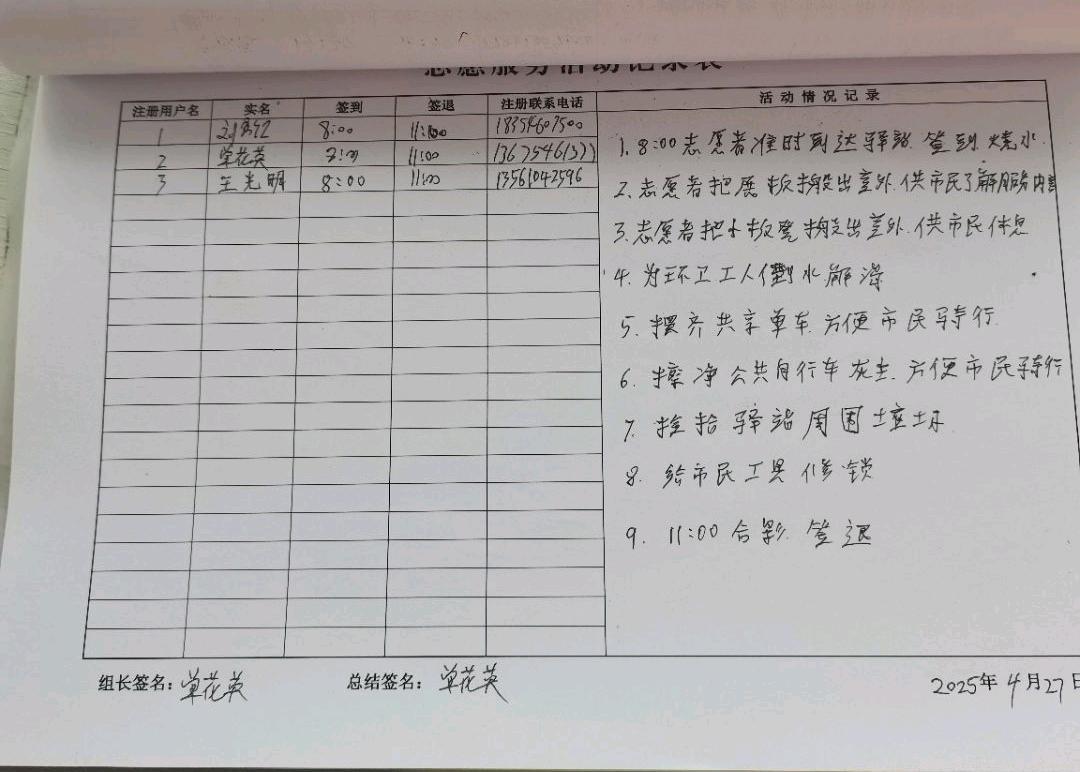 志愿服务活动记录表
注册用户名 实名 签到 签退 注册联系电话 活动情况记录
1 8:00 11:00
2 单花英 8:00 11:00
3 王光明 8:00 11:00 13561042596
1. 8:00志愿者准时到达驿站 签到 烧水
2. 志愿者把展板搬出室外.供市民了解服务内容
3. 志愿者把小板凳搬出室外.供市民休息
4. 为环卫工人倒水解渴
5. 摆齐共享单车.方便市民骑行.
6. 擦净公共自行车灰尘.方便市民骑行
7. 捡拾驿站周围垃圾.
8. 给市民工具修锁
9. 11:00合影.签退
组长签名：单花英 总结签名：单花英 2025年4月27日